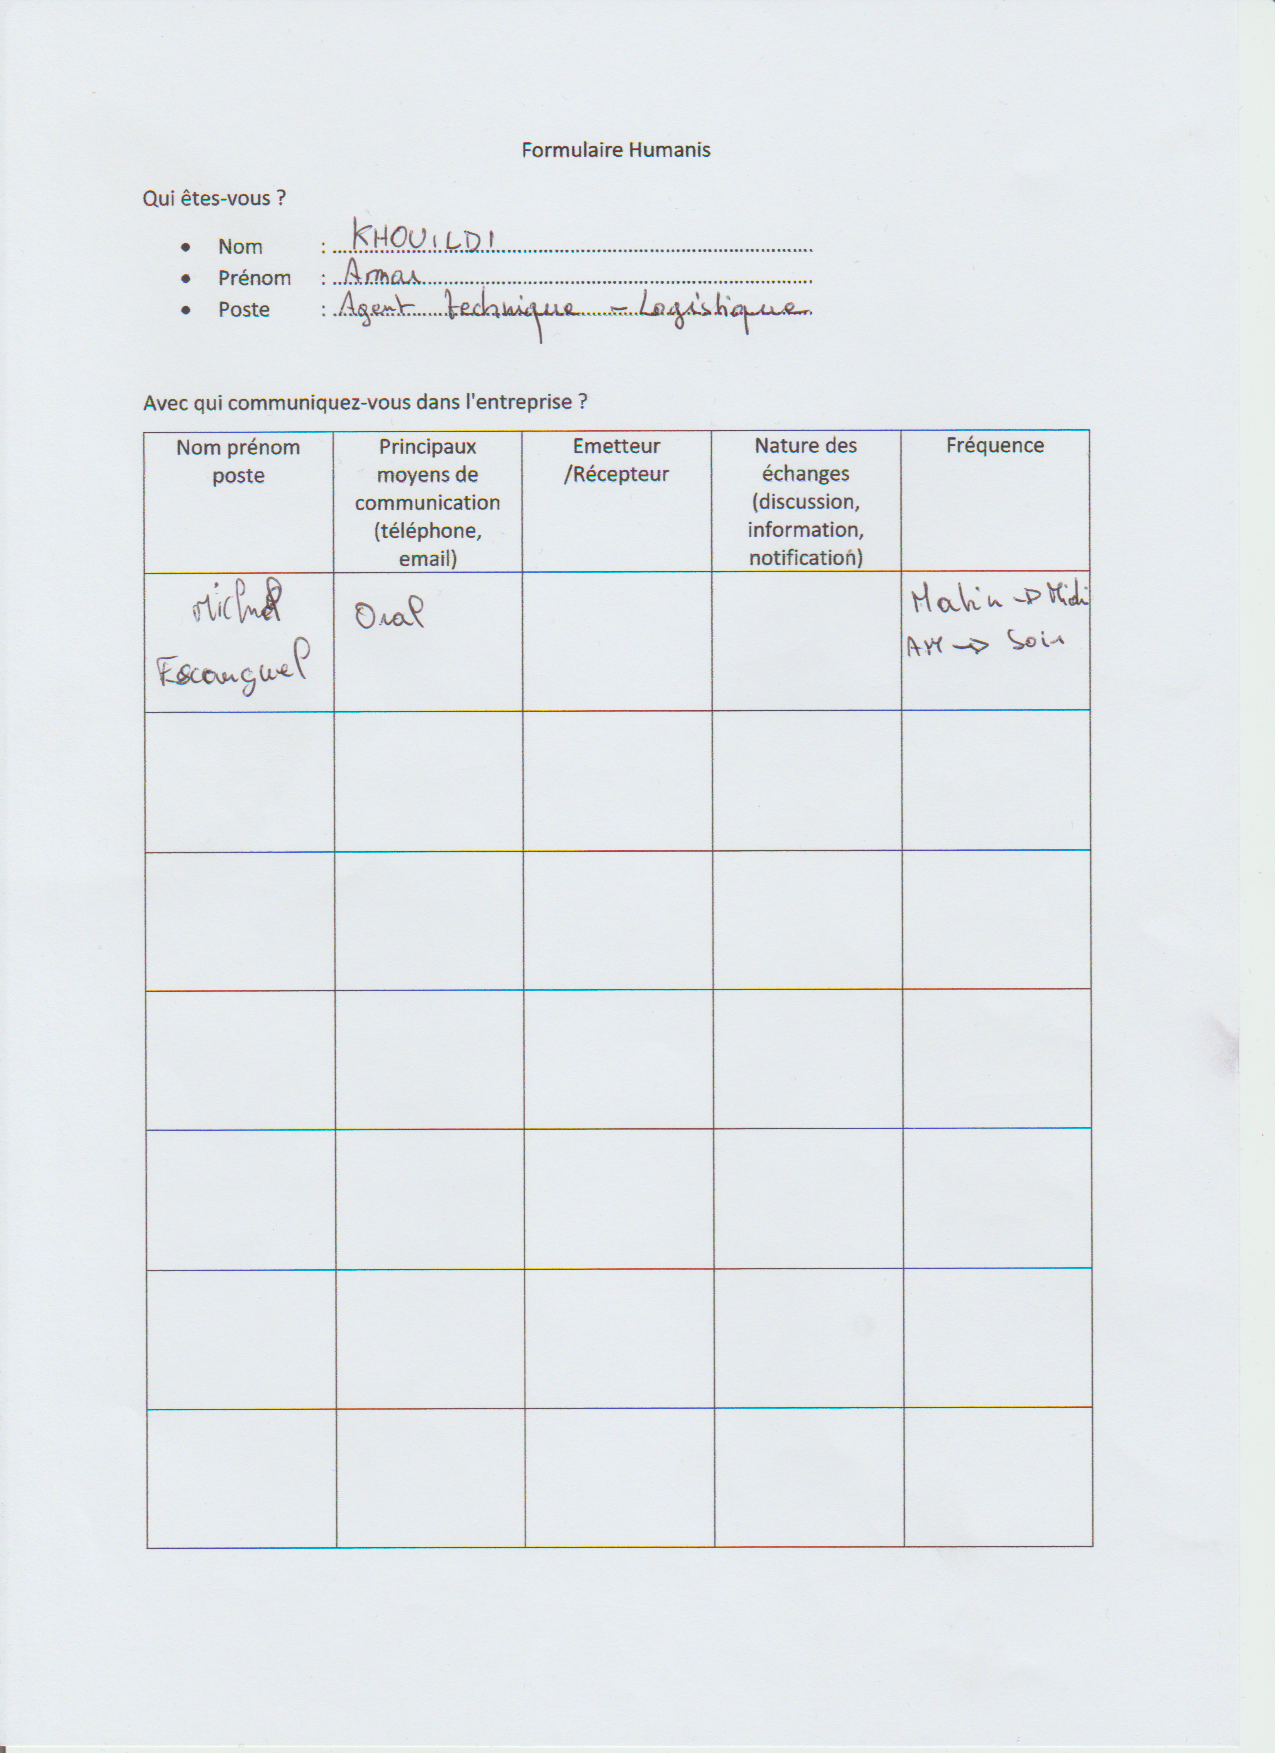 Formulaire Humanis
Qui êtes-vous ?
• Nom : KHOUILDI
• Prénom : Ammar
• Poste : Agent technique - Logistique
Avec qui communiquez-vous dans l'entreprise ?
Nom prénom
poste
Principaux
moyens de
communication
(téléphone,
email)
Emetteur
/Récepteur
Nature des
échanges
(discussion,
information,
notification)
Fréquence
Michel
Escanguel
Oral
Matin → Midi
AM → Soir